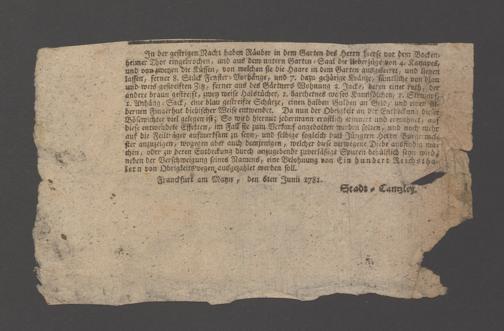 In der gestrigen Nacht haben Räuber in dem Garten des Herrn vor dem Bocken-
heimer Thor eingebrochen, und aus dem untern Garten-Saal die Ueberzüge von 4. Kanapes,
und von zweyen die Küssen, von welchen sie die Haare in dem Garten ausgeleeret, und liegen
lassen, ferner 8. Stück Fenster-Vorhänge, und 7. dazu gehörige Kränze, sämtliche von blau
und weis gestreiften Zitz, ferner aus des Gärtners Wohnung 2. Jacks, davon eine roth, der
andere braun gestreift, zwey weisse Halstücher, 1. Barchetnes weises Kamisölchen, 1.
1. Anhäng-Sack, eine blau gestreifte Schürze, einen halben Gulden an Geld, und einen sil-
bernen Fingerhut diebischer Weise entwendet. Da nun der Obrigkeit an der Entdeckung dieser
Bösewichter viel gelegen ist; So wird hiermit jedermann ernstlich erinnert und ermahnet, auf
diese entwendete Effekten, im Fall sie zum Verkauf angebotten werden solten, und noch mehr
auf die Feilträger aufmerksam zu seyn, und selbige sogleich des Jüngern Herrn Burgermei-
ster anzuzeigen, wogegen aber auch demjenigen, welcher diese verwegene Diebe ausfündig ma-
chen, oder zu deren Entdeckung durch anzugebende zuverläßige Spuren behülflich seyn wird,
neben der Verschweigung seines Namens, eine Belohnung von Ein hundert Reichstha-
lern von Obrigkeitswegen ausgezahlet werden soll.
Franckfurt am Mayn, den 6ten Junii 1781.
Stadt-Cantzley.